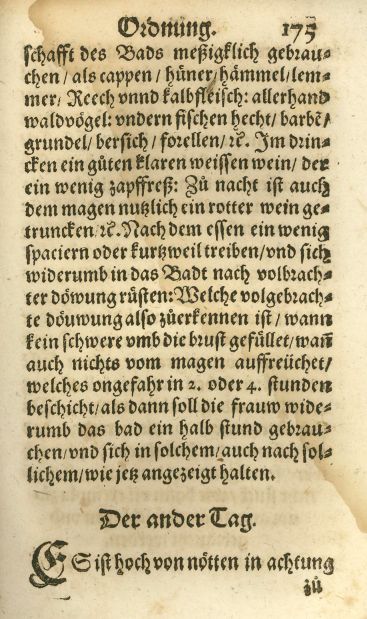 Ordnung. 175
schafft des Bads meßigklich gebrau⸗
chen / als cappen / hüner / hämmel / lem⸗
mer / Reech vnnd kalbfleisch: allerhand
waldvögel: vndern fischen hecht / barbẽ /
grundel / bersich / forellen / ꝛc. Im drin⸗
cken ein gůten klaren weissen wein / der
ein wenig zapffreß: Zů nacht ist auch
dem magen nutzlich ein rotter wein ge⸗
truncken / ꝛc. Nach dem essen ein wenig
spaciern oder kurtzweil treiben / vnd sich
widerumb in das Badt nach volbrach⸗
ter döwung rüsten: Welche volgebrach⸗
te döuwung also zůerkennen ist / wann
kein schwere vmb die brust gefüllet / wañ
auch nichts vom magen auffreüchet /
welches ongefahr in 2. oder 4. stunden
beschicht / als dann soll die frauw wide⸗
rumb das bad ein halb stund gebrau⸗
chen / vnd sich in solchem / auch nach sol⸗
lichem / wie jetz angezeigt halten.
Der ander Tag.
ES ist hoch von nötten in achtung
zů